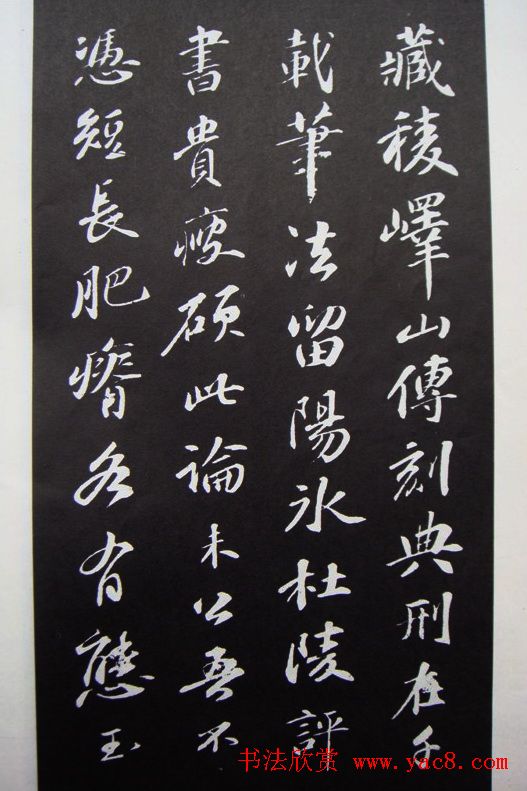 藏稜嶧山傳刻典刑在千
載筆法留陽冰杜陵評
書貴瘦硬此論未公吾不
憑短長肥瘠各有態玉
书法欣赏 www.yac8.com